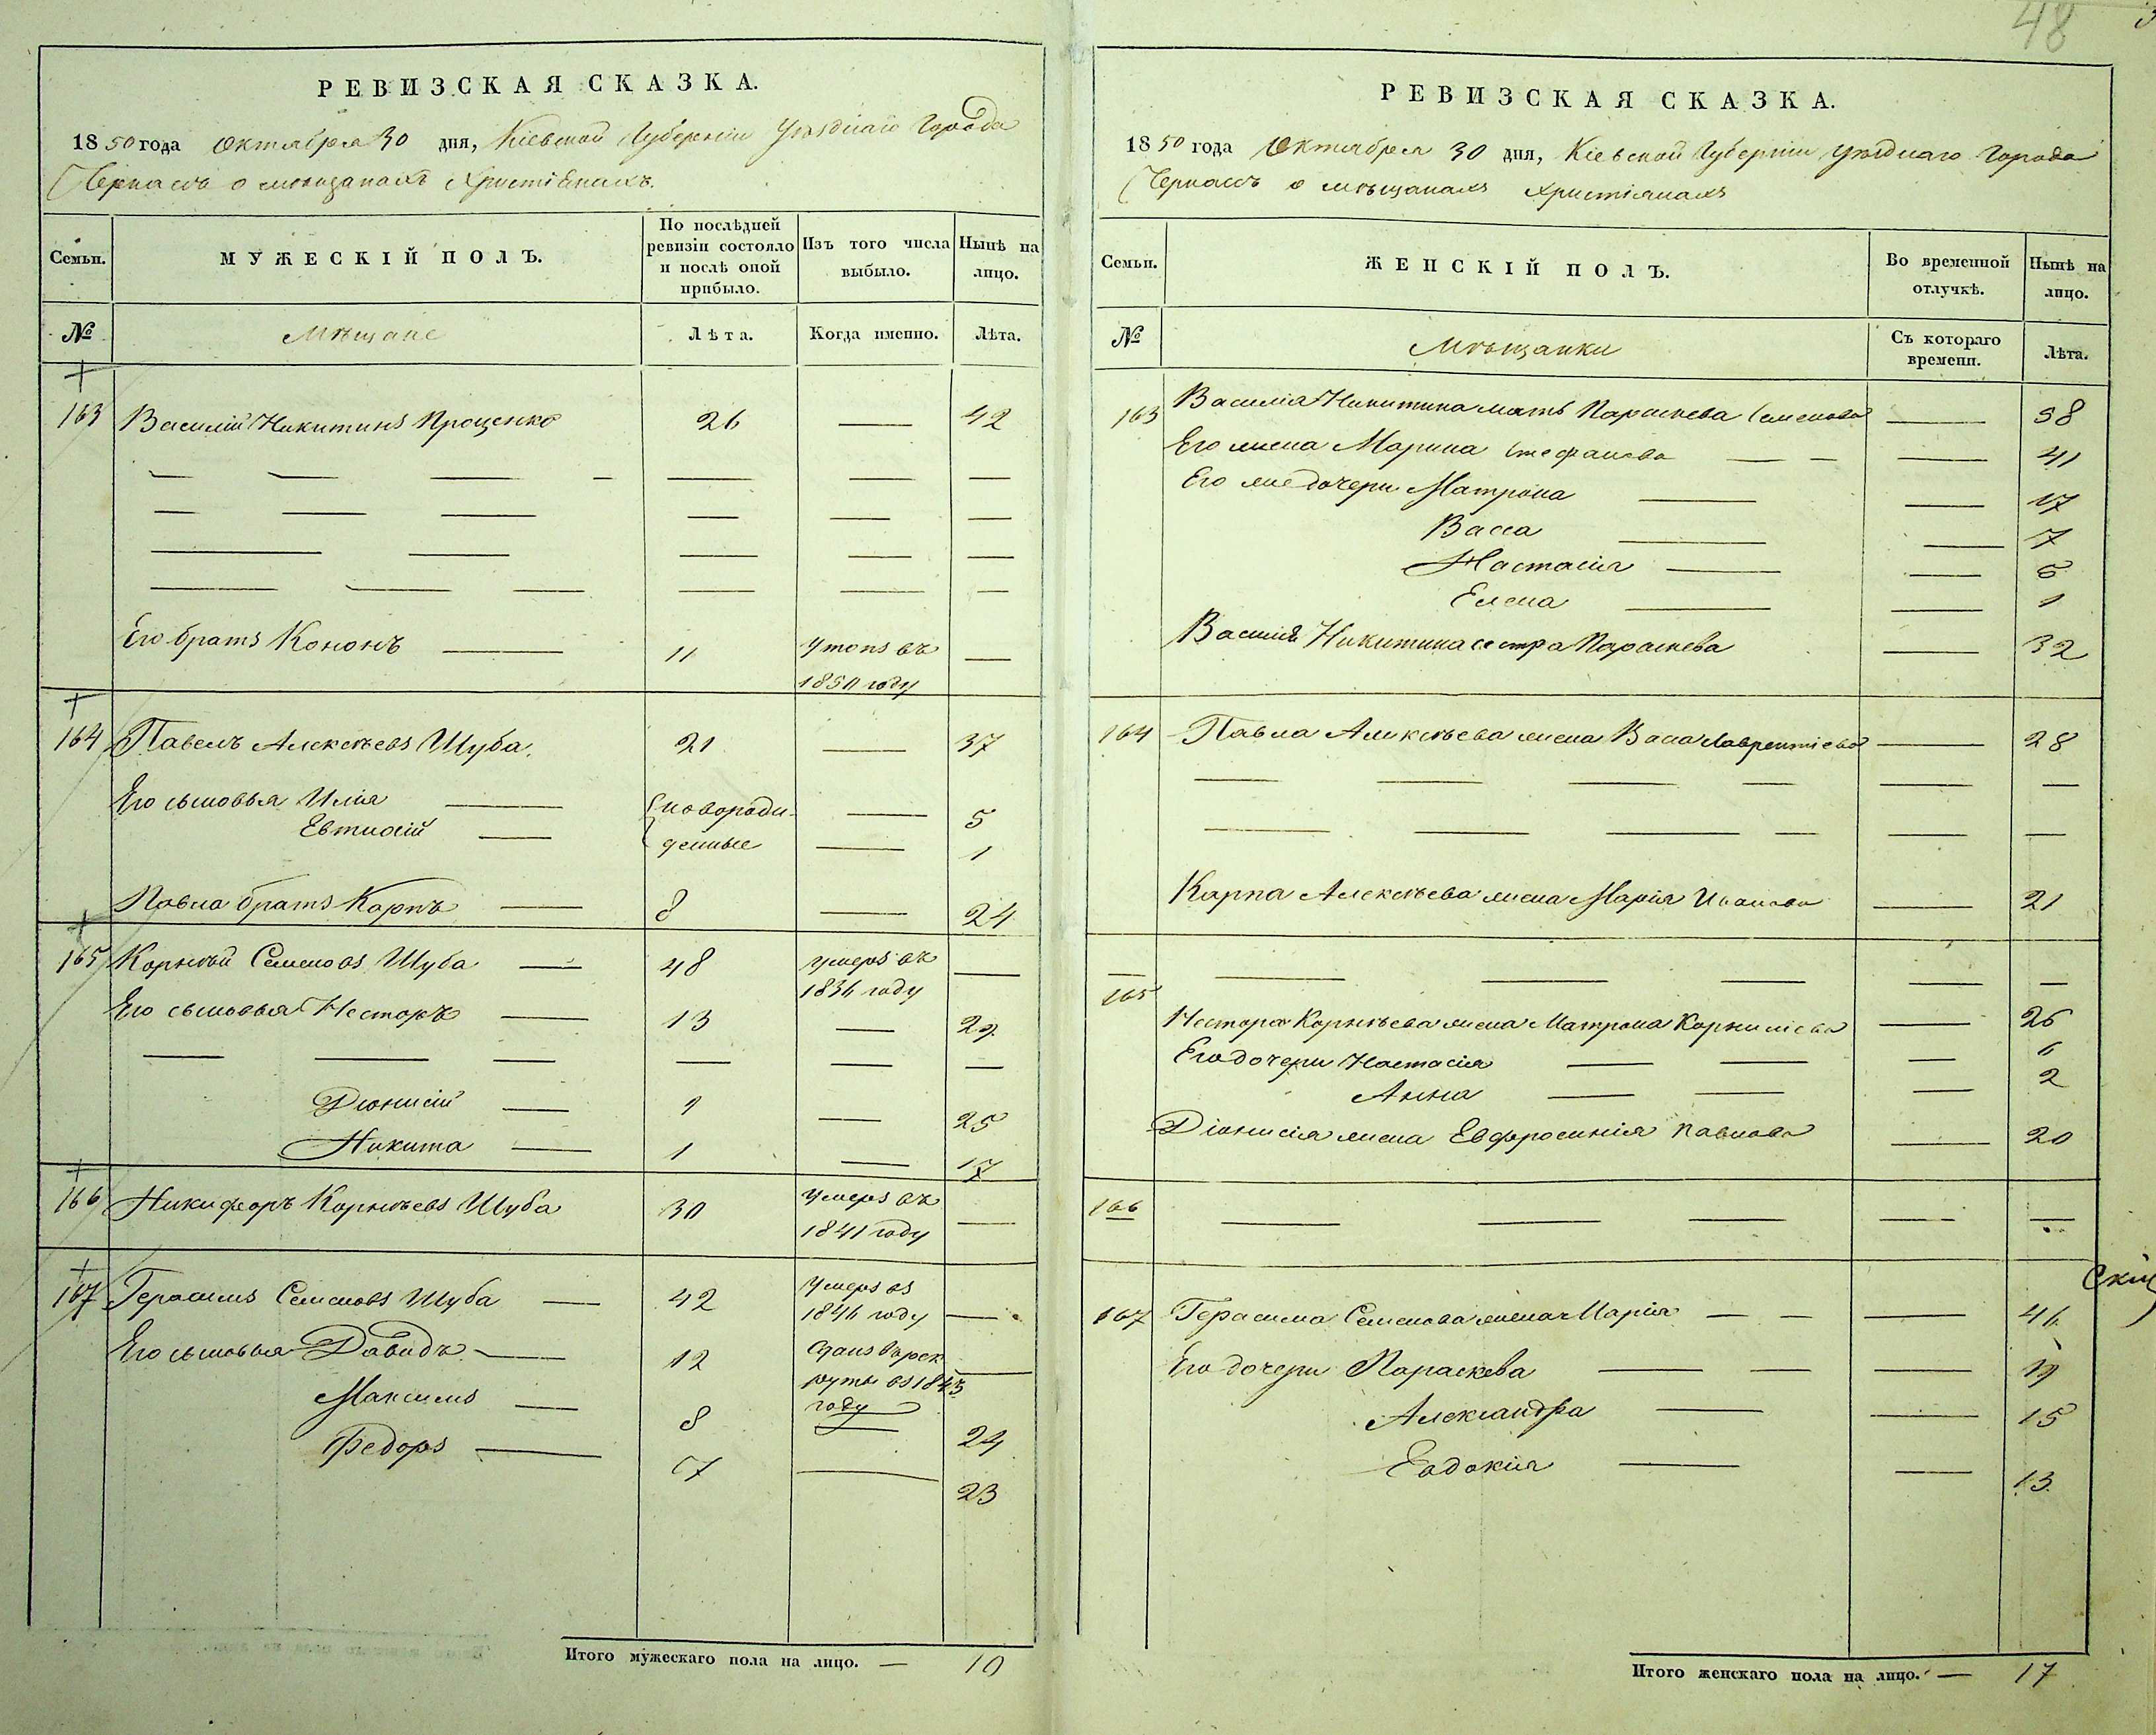 48
РЕВИЗСКАЯ СКАЗКА.
1850 года Октября 30 дня, Кіевской Губерніи Уѣзднаго Города
Черкассъ о мѣщанахъ Христіянахъ.
Семьи. МУЖЕСКІЙ ПОЛЪ. По послѣдней ревизіи состояло и послѣ оной прибыло. Изъ того числа выбыло. Нынѣ на лицо.
№ Мѣщане Лѣта. Когда именно. Лѣта.
163 Василій Никитинъ Проценко 26 — 42
Его братъ Кононъ — 11 Утопъ въ —
1850 году
164 Павелъ Алексѣевъ Шуба. 21 — 37
Его сыновья Илія — новорож- — 5
Евтихій — денные — 1
Павла братъ Карпъ — 8 — 24
165 Корнѣй Семеновъ Шуба — 48 умеръ въ —
1836 году
Его сыновья Несторъ — 13 — 29
Діонисій — 9 — 25
Никита — 1 — 17
166 Никифоръ Корнѣевъ Шуба 30 Умеръ въ —
1841 году
167 Герасимъ Семеновъ Шуба — 42 Умеръ въ
1846 году —
Его сыновья Давидъ — 12 Сданъ въ рек-
руты въ 1843 —
году
Максимъ — 8 — 24
Федоръ — 7 — 23
Итого мужескаго пола на лицо. — 10
РЕВИЗСКАЯ СКАЗКА.
1850 года Октября 30 дня, Кіевской Губерніи Уѣзднаго Города
Черкассъ о мѣщанахъ Христіянахъ
Семьи. ЖЕНСКІЙ ПОЛЪ. Во временной отлучкѣ. Нынѣ на лицо.
№ Мѣщанки Съ котораго времени. Лѣта.
163 Василія Никитина мать Параскева Семенова — 58
Его жена Марина Стефанова — — — 41
Его же дочери Матрона — — 17
Васса — — 7
Настасія — — 5
Елена — — 1
Василія Никитина сестра Параскева — 32
164 Павла Алексѣева жена Васса Лаврентіева — 28
Карпа Алексѣева жена Марія Иванова — 21
165
Нестора Корнѣева жена Матрона Корниліева — 26
Его дочери Настасія — — — 6
Анна — — — 2
Діонисія жена Евфросинія Павлова — 20
166 — — — — —
167 Герасима Семенова жена Марія — — — 46
Его дочери Параскева — — — 19
Александра — — 15
Евдокія — — 13
Итого женскаго пола на лицо. — 17